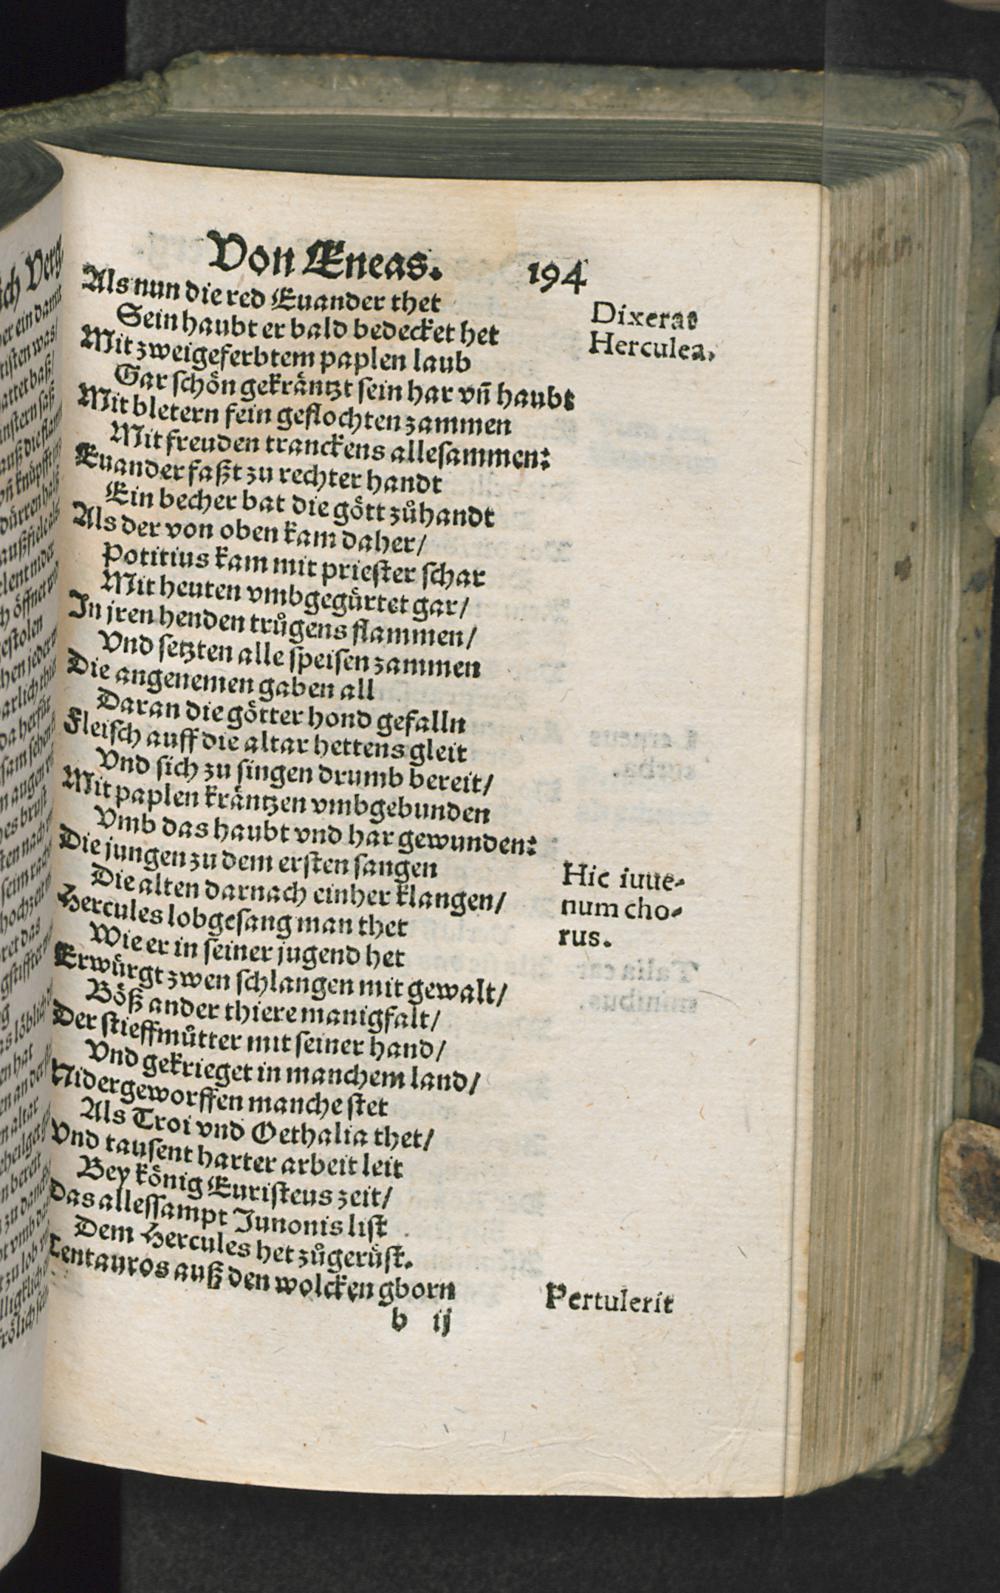 Von Æneas. 194
Als nun die red Euander thet
Dixerat
Sein haubt er bald bedecket het
Herculea,
Mit zweigeferbtem paplen laub
Gar schön gekräntzt sein har vñ haubt
Mit bletern fein geflochten zammen
Mit freuden tranckens allesammen:
Euander faßt zu rechter handt
Ein becher bat die gött zůhandt
Als der von oben kam daher/
Potitius kam mit priester schar
Mit heuten vmbgegürtet gar/
In jren henden trůgens flammen/
Vnd setzten alle speisen zammen
Die angenemen gaben all
Daran die götter hond gefalln
Fleisch auff die altar hettens gleit
Vnd sich zu singen drumb bereit/
Mit paplen kräntzen vmbgebunden
Vmb das haubt vnd har gewunden:
Die jungen zu dem ersten sangen
Hic iuue-
Die alten darnach einher klangen/
num cho-
Hercules lobgesang man thet
rus.
Wie er in seiner jugend het
Erwürgt zwen schlangen mit gewalt/
Böß ander thiere manigfalt/
Der stieffmůtter mit seiner hand/
Vnd gekrieget in manchem land/
Nidergeworffen manche stet
Als Troi vnd Oethalia thet/
Vnd tausent harter arbeit leit
Bey könig Euristeus zeit/
Das allessampt Junonis list
Dem Hercules het zůgerüst.
Centauros auß den wolcken gborn
Pertulerit
b ij